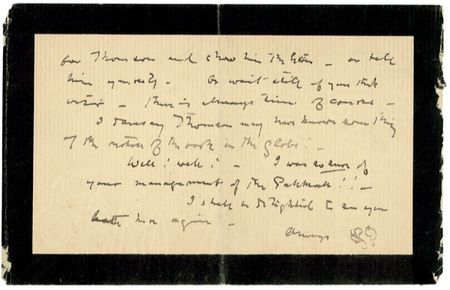 for Thomson and show him the letter – or tell
him yourself – Or wait still if you think
– there is always time of course –
I daresay Thomson may have known something
of the notice of the book in the Globe! –
Well! well! – I was so sure of
your management of the !! –
I shall be delighted to see you
here again –
Always